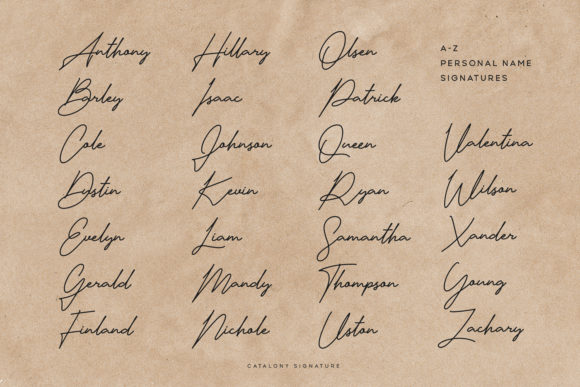 Anthony
Barley
Cole
Dystin
Evelyn
Gerald
Finland
Hillary
Isaac
Johnson
Kevin
Liam
Mandy
Nichole
Olsen
Patrick
Queen
Ryan
Samantha
Thompson
Uston
A-Z
PERSONAL NAME
SIGNATURES
Valentina
Wilson
Xander
Young
Zachary
CATALONY SIGNATURE